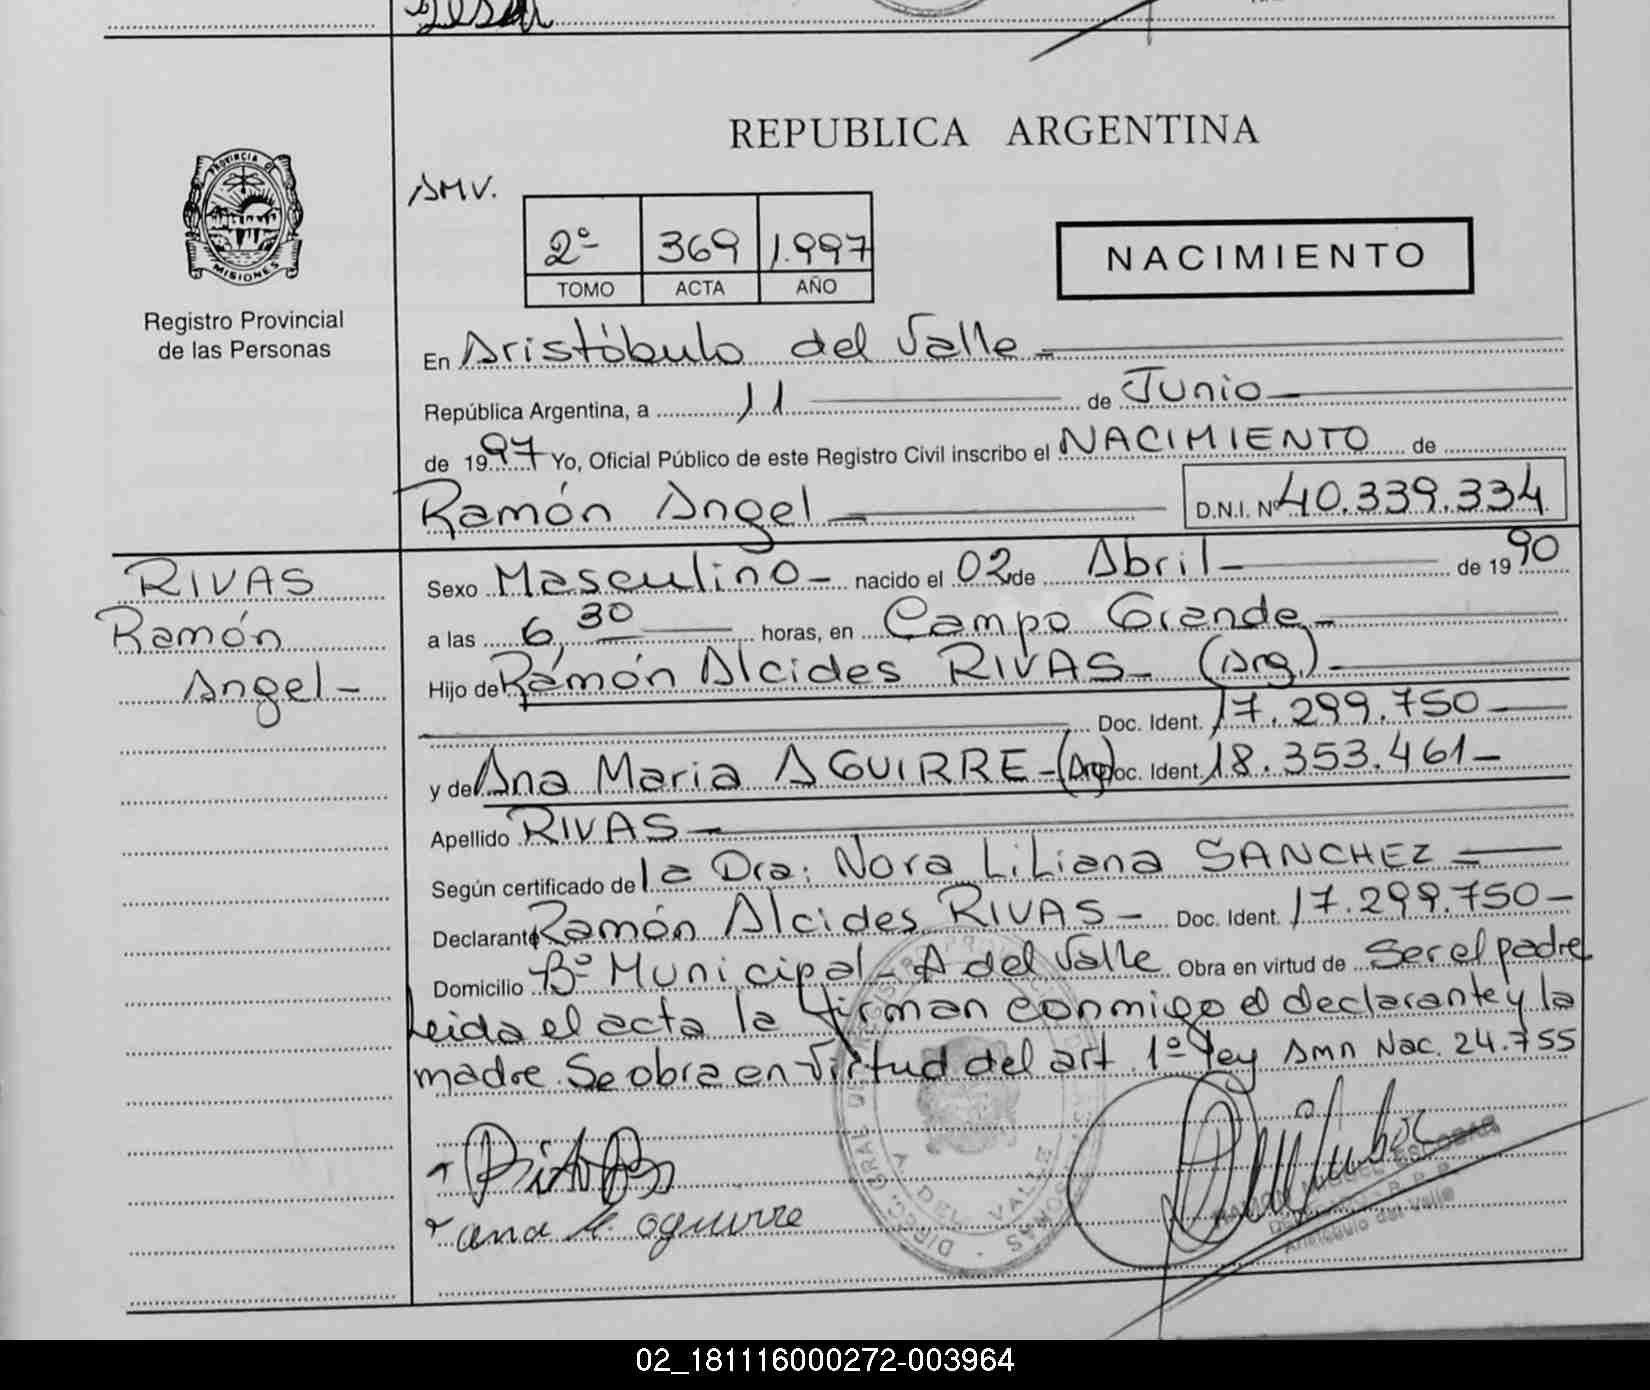 REPUBLICA ARGENTINA
PROVINCIA DE
MISIONES
Registro Provincial
de las Personas
AMV.
2º 369 1.997
TOMO ACTA AÑO
NACIMIENTO
En Aristóbulo del Valle
República Argentina, a 11 de Junio
de 1997 Yo, Oficial Público de este Registro Civil inscribo el NACIMIENTO de
Ramón Angel D.N.I. Nº 40.339.334
RIVAS
Ramón
Angel
Sexo Masculino nacido el 02 de Abril de 1990
a las 6,30 horas, en Campo Grande
Hijo de Ramón Alcides RIVAS (Arg.)
Doc. Ident. 17.299.750
y de Ana Maria AGUIRRE (Arg) Doc. Ident. 18.353.461
Apellido RIVAS
Según certificado de la Dra: Nora Liliana SANCHEZ
Declarante Ramón Alcides RIVAS Doc. Ident. 17.299.750
Domicilio Bº Municipal - A del Valle Obra en virtud de Ser el padre
Leida el acta la firman conmigo el declarante y la
madre. Se obra en virtud del art. 1º ley Amn Nac. 24.755
ana M. aguirre
ESCOBAR
Aristóbulo del Valle
02_181116000272-003964